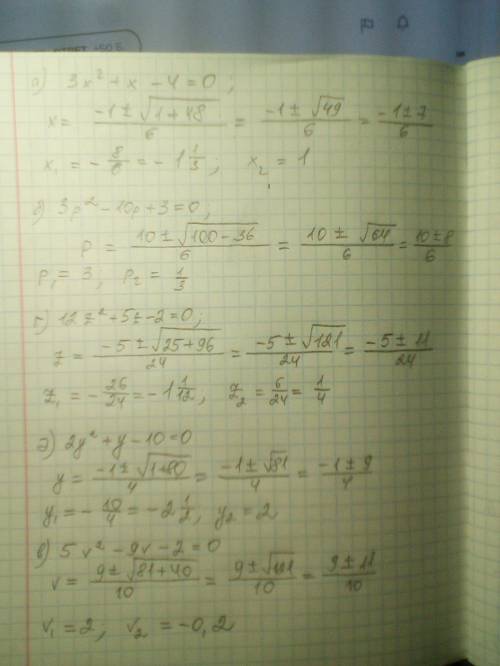 а) 3x² + x - 4 = 0;
x = (-1 ± √(1+48))/6 = (-1 ± √49)/6 = (-1 ± 7)/6
x₁ = -8/6 = -1 1/3; x₂ = 1
б) 3p² - 10p + 3 = 0;
p = (10 ± √(100-36))/6 = (10 ± √64)/6 = (10 ± 8)/6
p₁ = 3; p₂ = 1/3
г) 12z² + 5z - 2 = 0;
z = (-5 ± √(25+96))/24 = (-5 ± √121)/24 = (-5 ± 11)/24
z₁ = -26/24 = -1 1/12, z₂ = 6/24 = 1/4
д) 2y² + y - 10 = 0
y = (-1 ± √(1+80))/4 = (-1 ± √81)/4 = (-1 ± 9)/4
y₁ = -10/4 = -2 1/2, y₂ = 2
в) 5v² - 9v - 2 = 0
v = (9 ± √(81+40))/10 = (9 ± √121)/10 = (9 ± 11)/10
v₁ = 2; v₂ = -0,2